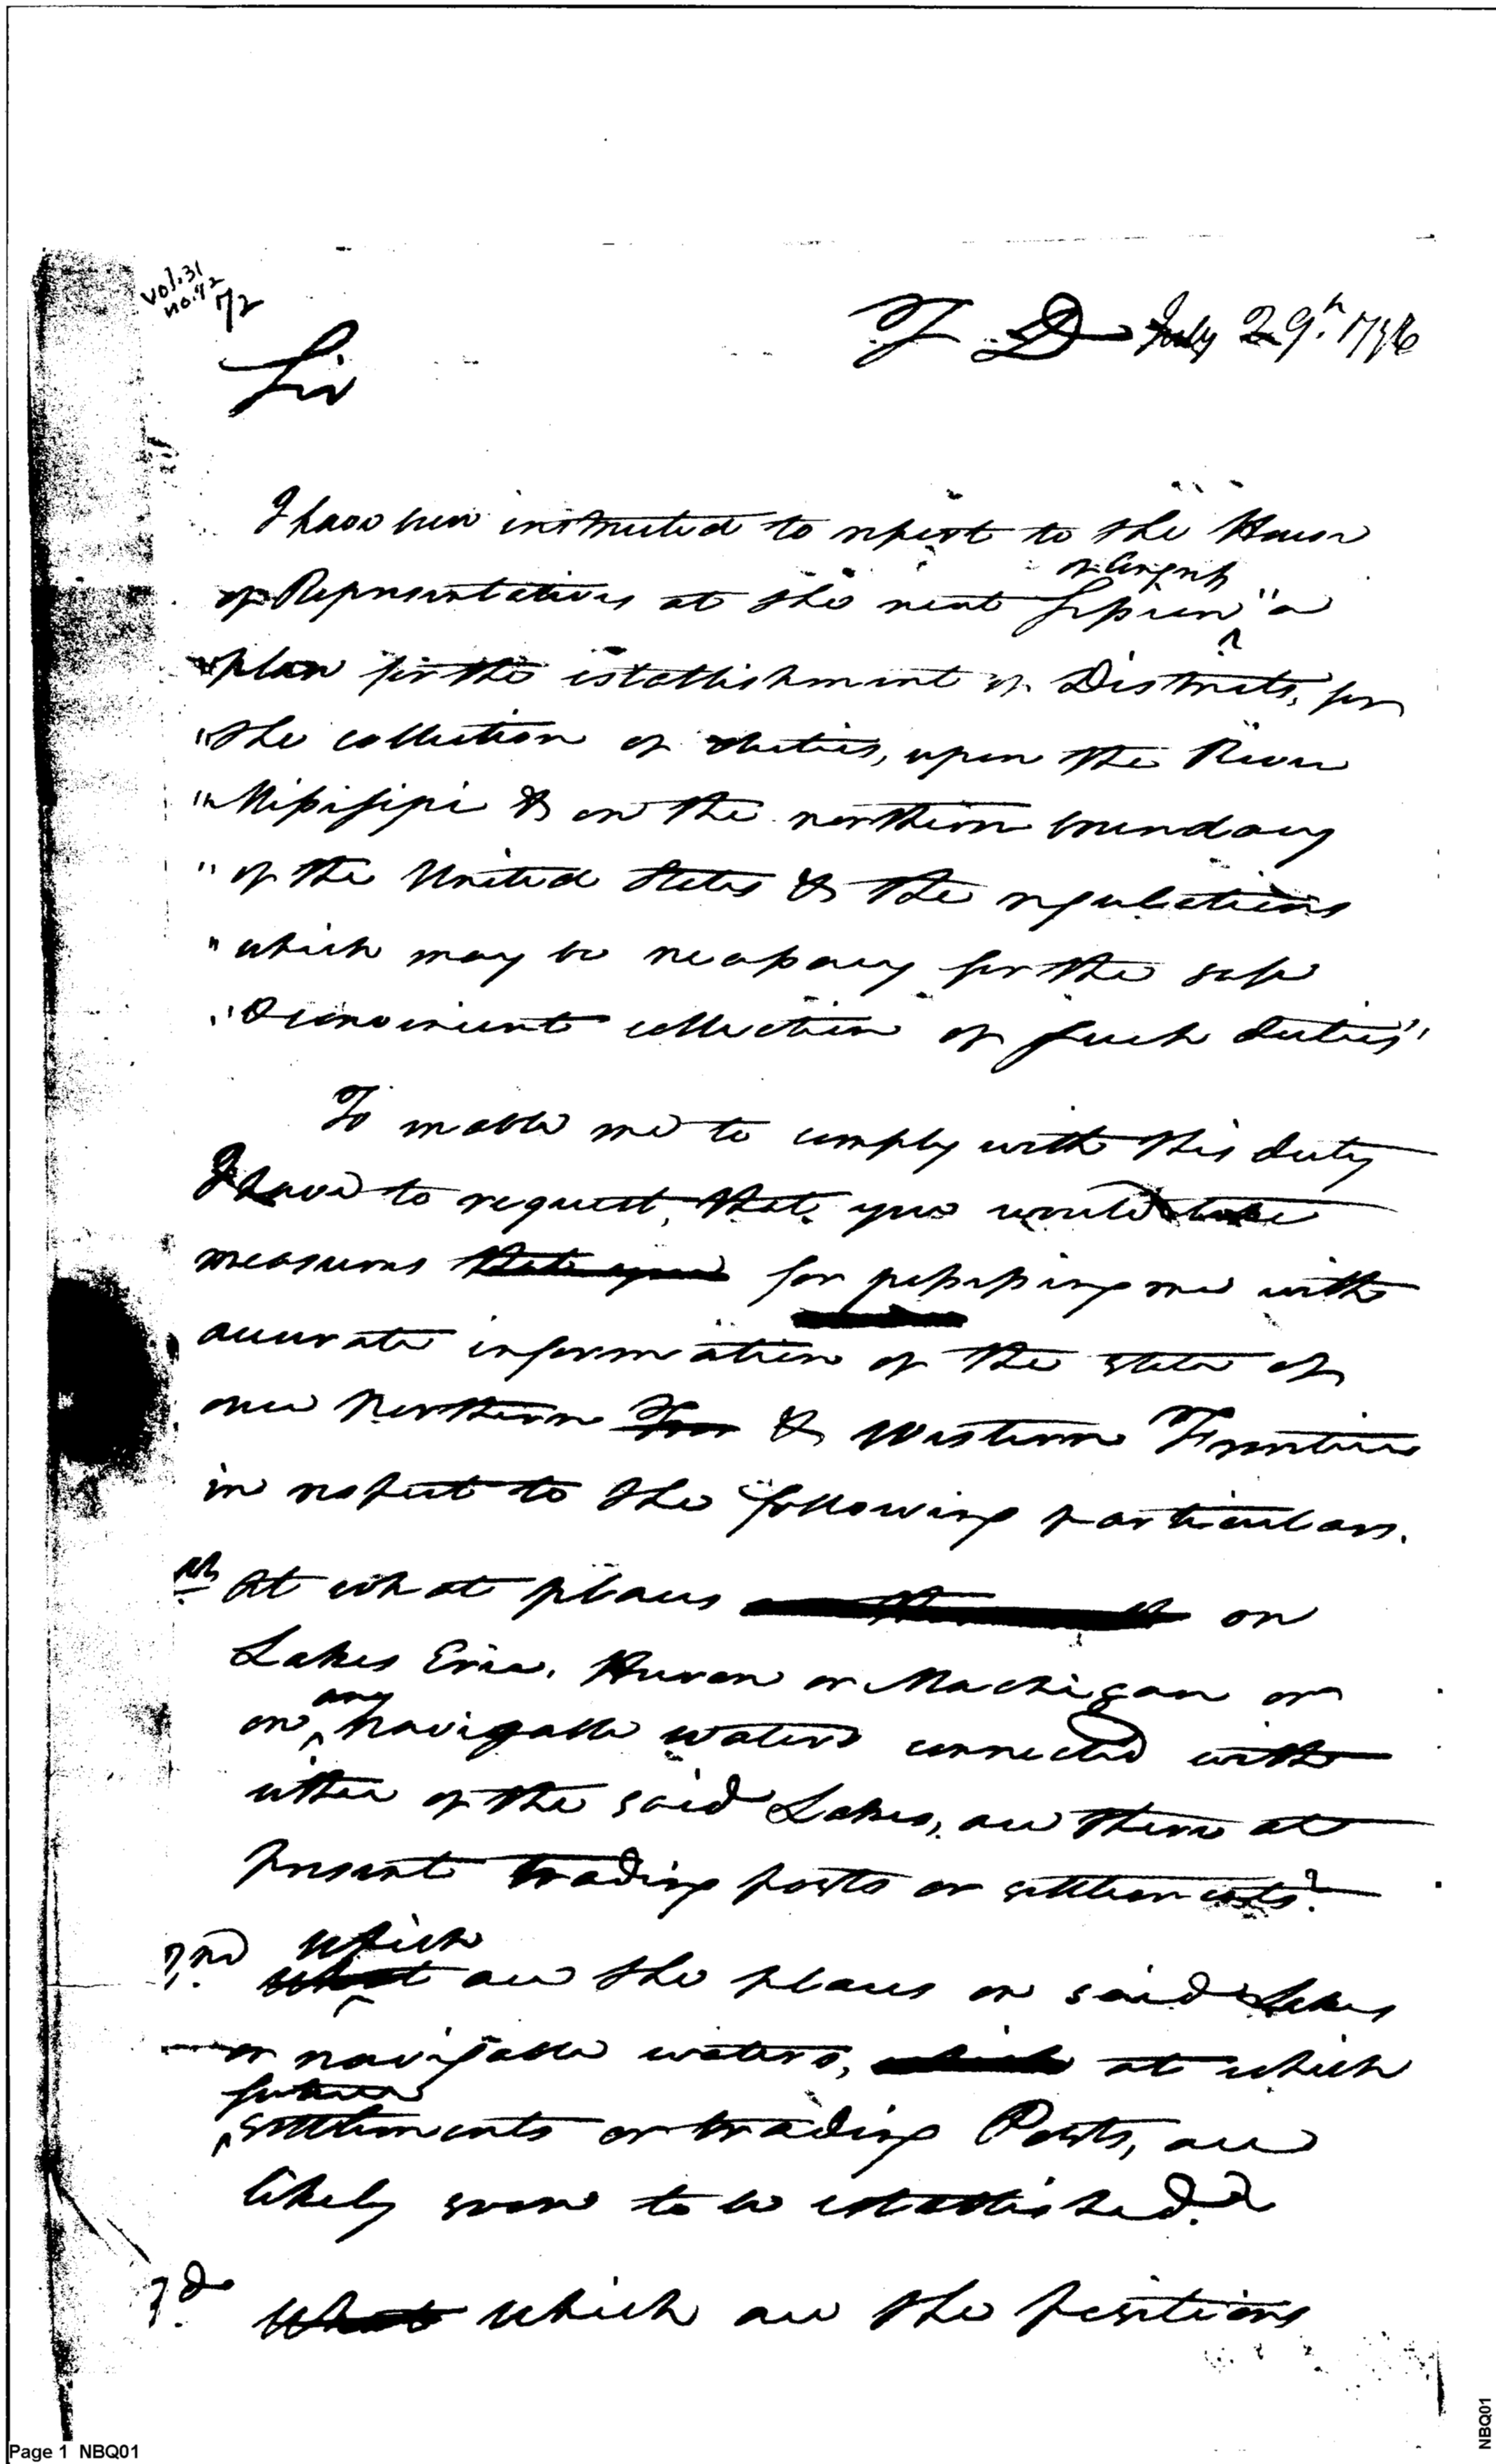 vol. 31
no. 72
72
T D July 29th. 1796
Sir
I have been instructed to report to the House
of Congress
of Representatives at the next Session "a
"plan for the establishment of Districts, for
"the collection of duties, upon the River
"Missisippi & on the northern boundary
"of the United States & the regulations
"which may be necessary for the safe
"& convenient collection of such duties"
To enable me to comply with this duty
I have to request, that you would take
measures that you for possessing me with
accurate information of the state of
our Northern Fron & Western Frontiers
in respect to the following particulars.
1st At what places on
Lakes Erie, Huron or Machigan or
any
on navigable waters connected with
either of the said Lakes, are there at
present trading posts or settlements?
2nd. which
what are the places on said Lakes
or navigable waters, which at which
future
settlements or trading Posts, are
likely soon to be established?
3d. What which are the positions
Page 1 NBQ01
NBQ01